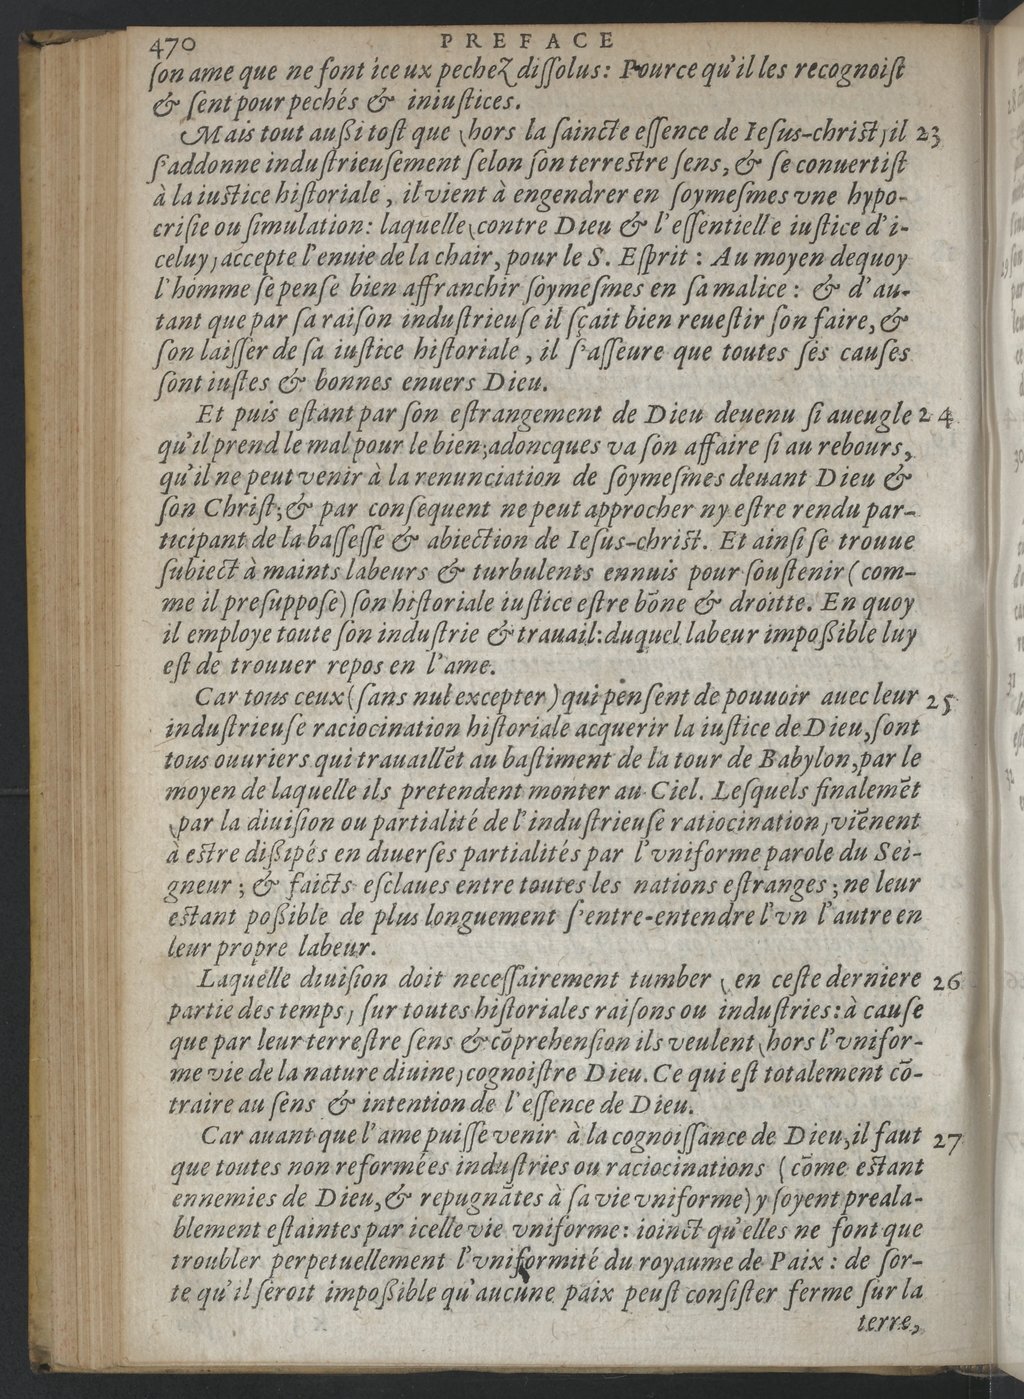 470 PREFACE
ſon ame que ne font iceux pechez diſſolus: Pource qu'il les recognoiſt
& ſent pour pechés & iniuſtices.
Mais tout außi toſt que (hors la ſaincte eſſence de Ieſus-chriſt) il 23
ſ'addonne induſtrieuſement ſelon ſon terreſtre ſens, & ſe conuertiſt
à la iuſtice hiſtoriale, il vient à engendrer en ſoymeſmes vne hypo-
criſie ou ſimulation: laquelle (contre Dieu & l'eſſentielle iuſtice d'i-
celuy) accepte l'enuie de la chair, pour le S. Eſprit: Au moyen dequoy
l'homme ſe penſe bien affranchir ſoymeſmes en ſa malice: & d'au-
tant que par ſa raiſon induſtrieuſe il ſçait bien reueſtir ſon faire, &
ſon laiſſer de ſa iuſtice hiſtoriale, il ſ'aſſeure que toutes ſes cauſes
ſont iuſtes & bonnes enuers Dieu.
Et puis eſtant par ſon eſtrangement de Dieu deuenu ſi aueugle 24
qu'il prend le mal pour le bien; adoncques va ſon affaire ſi au rebours,
qu'il ne peut venir à la renunciation de ſoymeſmes deuant Dieu &
ſon Chriſt; & par conſequent ne peut approcher ny eſtre rendu par-
ticipant de la baſſeſſe & abiection de Ieſus-chriſt. Et ainſi ſe trouue
ſubiect à maints labeurs & turbulents ennuis pour ſouſtenir (com-
me il preſuppoſe) ſon hiſtoriale iuſtice eſtre bōne & droitte. En quoy
il employe toute ſon induſtrie & trauail: duquel labeur impoßible luy
eſt de trouuer repos en l'ame.
Car tous ceux (ſans nul excepter) qui penſent de pouuoir auec leur 25
induſtrieuſe raciocination hiſtoriale acquerir la iuſtice de Dieu, ſont
tous ouuriers qui trauaillēt au baſtiment de la tour de Babylon, par le
moyen de laquelle ils pretendent monter au Ciel. Leſquels finalemēt
(par la diuiſion ou partialité de l'induſtrieuſe ratiocination) viēnent
à eſtre dißipés en diuerſes partialités par l'vniforme parole du Sei-
gneur; & faicts eſclaues entre toutes les nations eſtranges; ne leur
eſtant poßible de plus longuement ſ'entre-entendre l'vn l'autre en
leur propre labeur.
Laquelle diuiſion doit neceſſairement tumber (en ceſte derniere 26
partie des temps) ſur toutes hiſtoriales raiſons ou induſtries: à cauſe
que par leur terreſtre ſens & cōprehenſion ils veulent (hors l'vnifor-
me vie de la nature diuine) cognoiſtre Dieu. Ce qui eſt totalement cō-
traire au ſens & intention de l'eſſence de Dieu.
Car auant que l'ame puiſſe venir à la cognoiſſance de Dieu, il faut 27
que toutes non reformées induſtries ou raciocinations (cōme eſtant
ennemies de Dieu, & repugnātes à ſa vie vniforme) y ſoyent preala-
blement eſtaintes par icelle vie vniforme: ioinct qu'elles ne font que
troubler perpetuellement l'vniformité du royaume de Paix: de ſor-
te qu'il ſeroit impoßible qu'aucune paix peuſt conſiſter ferme ſur la
terre,